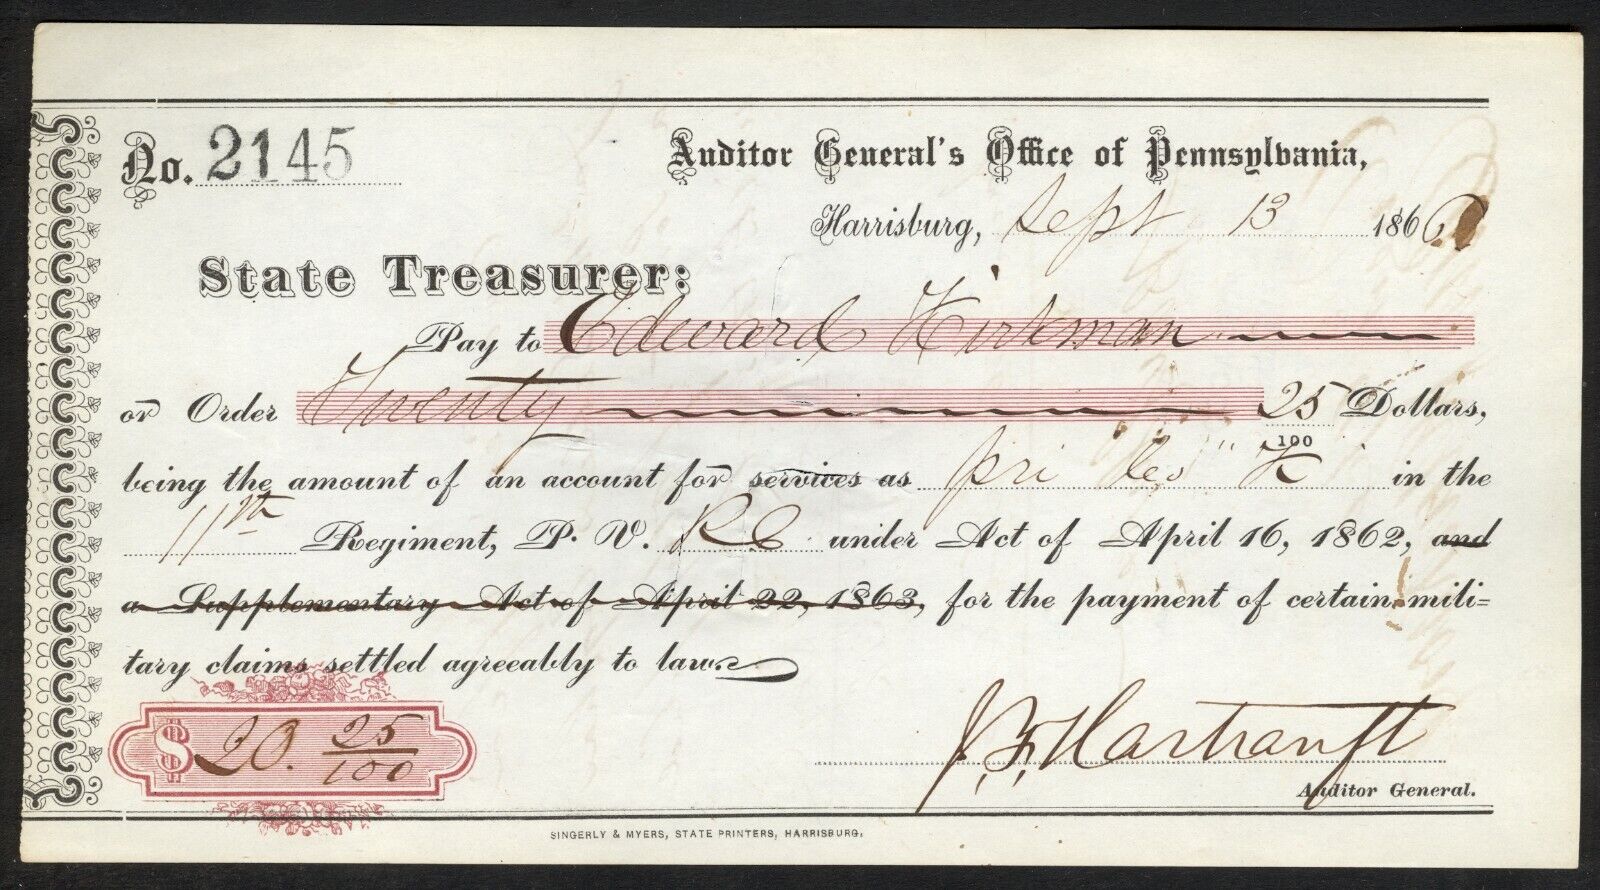 No. 2145
Auditor General's Office of Pennsylvania,
Harrisburg, Sept 13 1866
State Treasurer:
Pay to Edward Kirkman
or Order Twenty 25/100 Dollars,
being the amount of an account for services as pri Co "K" in the
11th Regiment, P. V. R C under Act of April 16, 1862, and
a Supplementary Act of April 22, 1863, for the payment of certain mili=
tary claims settled agreeably to law.
$20. 25/100
J. F. Hartranft
Auditor General.
SINGERLY & MYERS, STATE PRINTERS, HARRISBURG.